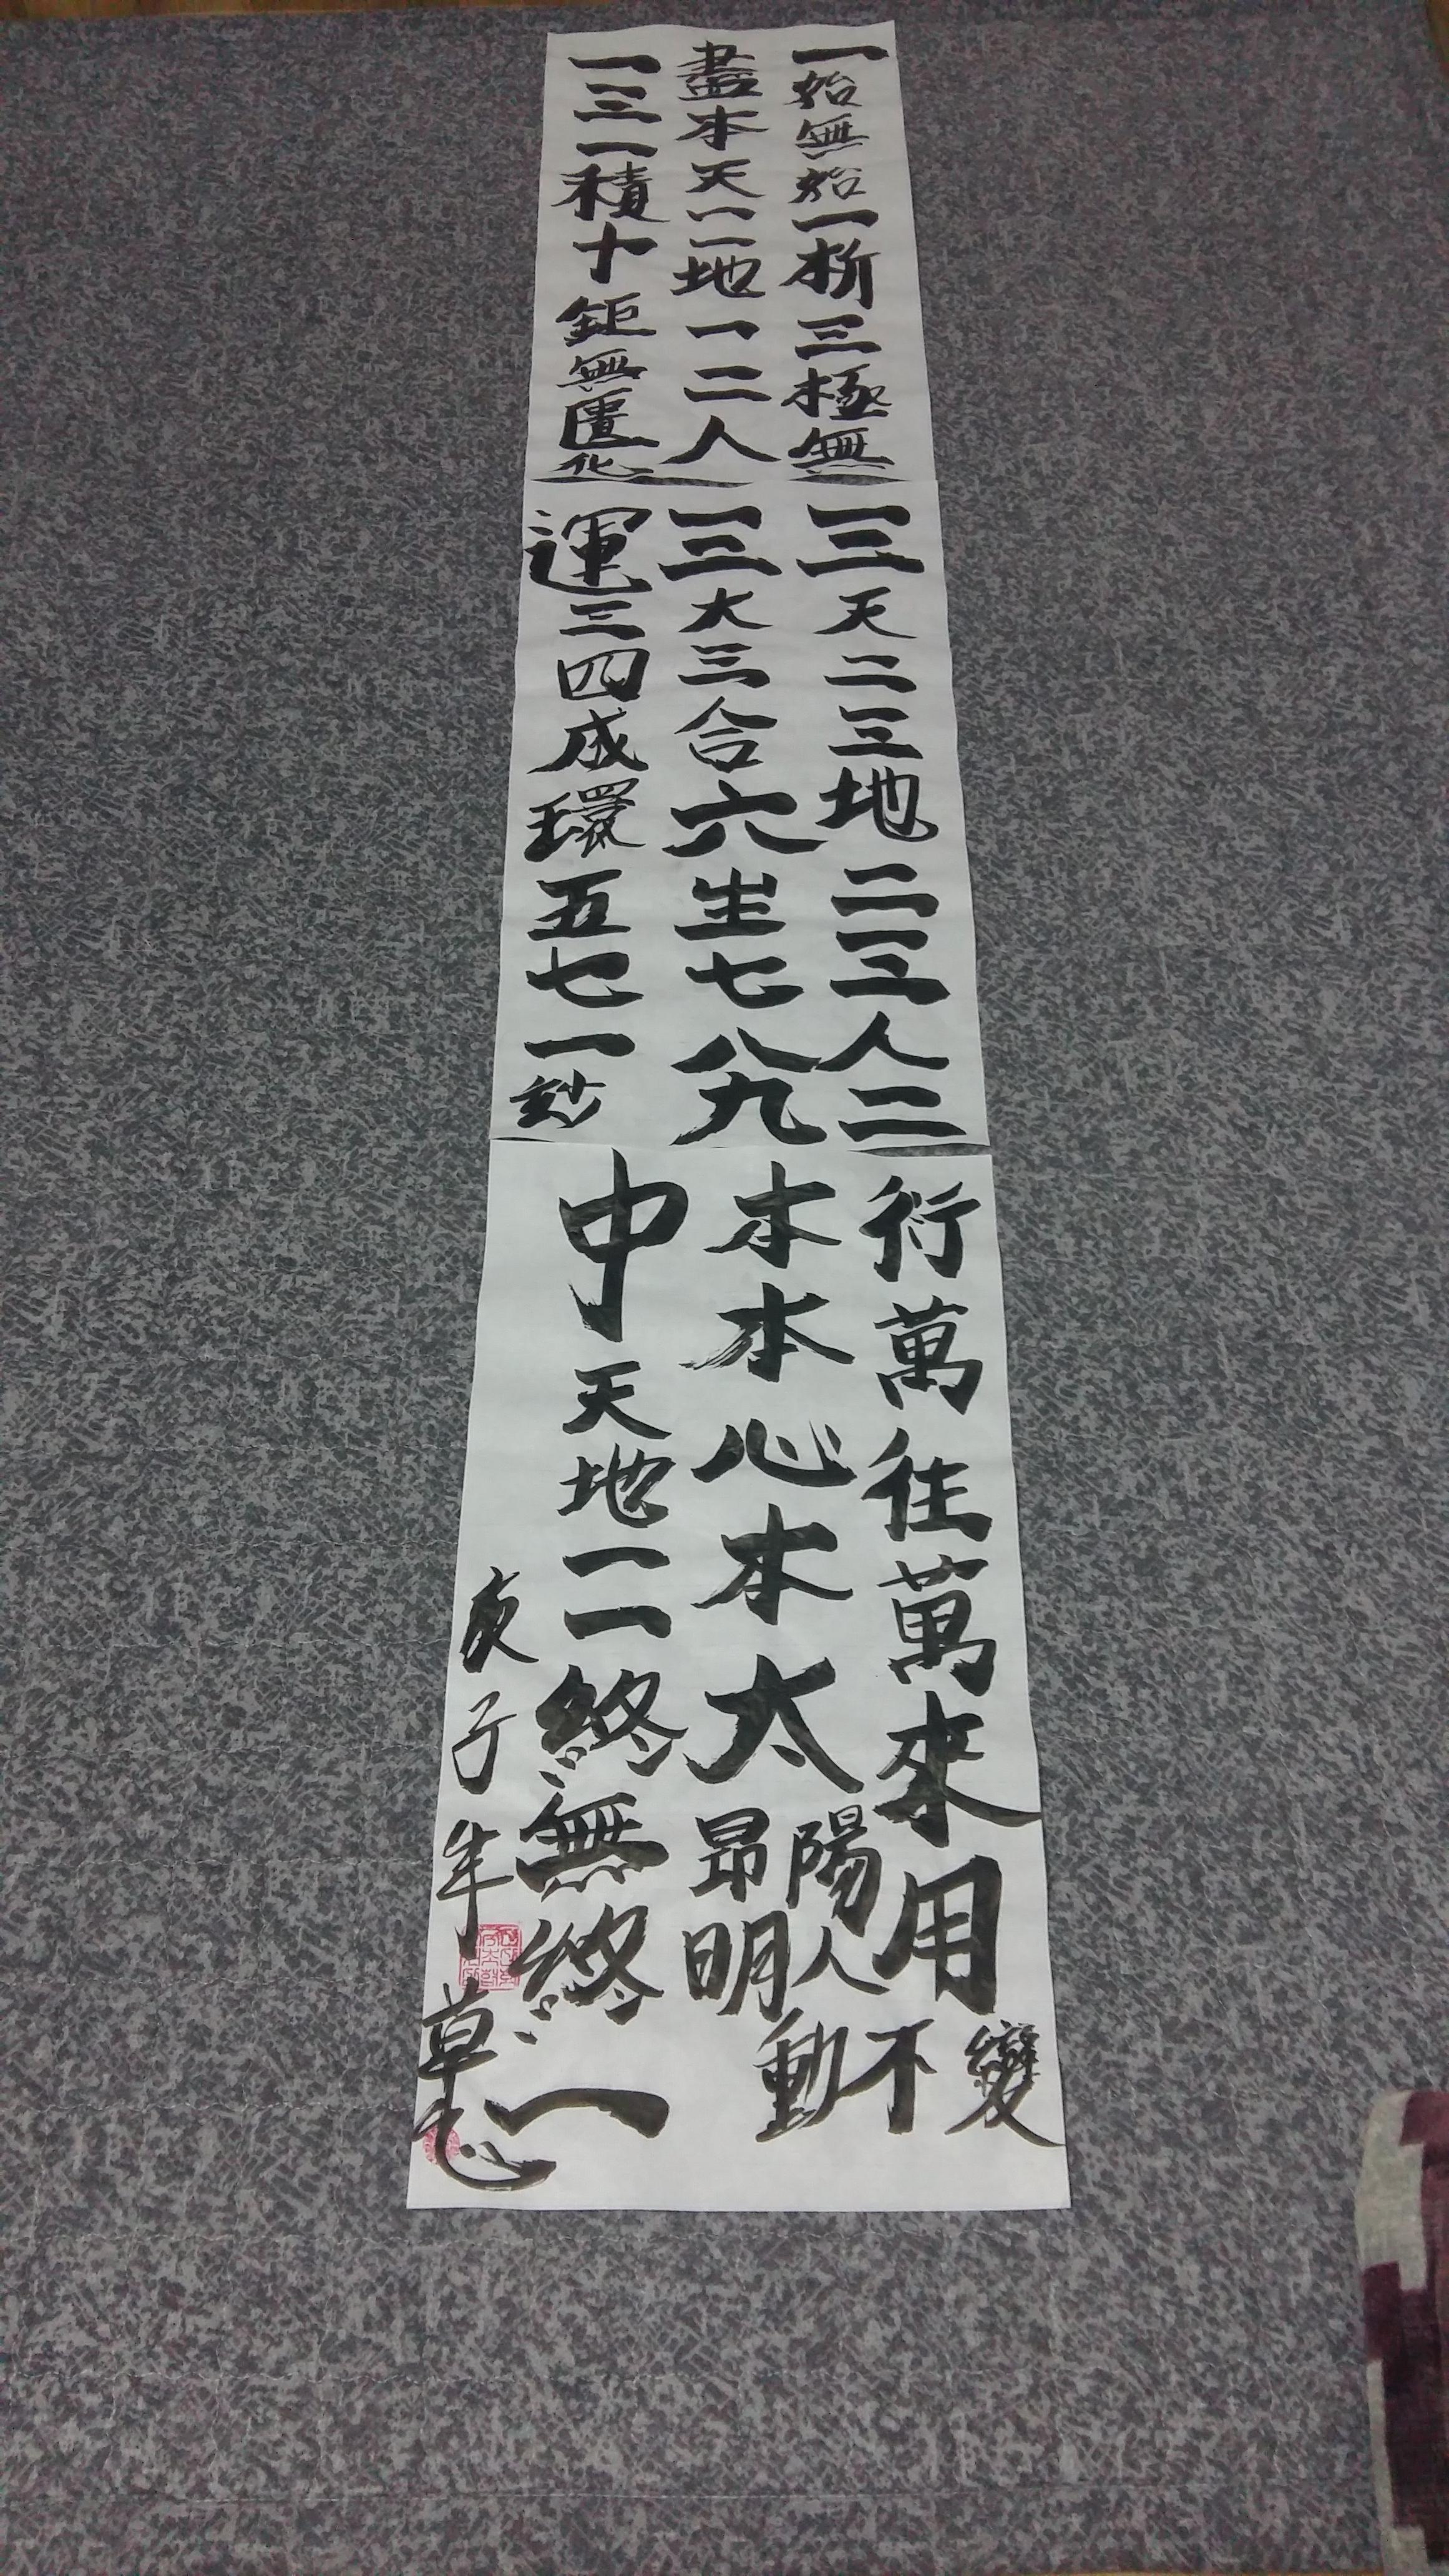 一始無始一析三極無
盡本天一一地一二人
一三一積十鉅無匱化
三天二三地二三人二
三大三合六生七八九
運三四成環五七一妙
衍萬往萬來用變不動
本本心本太陽昂明人
中天地一一終無終一
庚子年 草